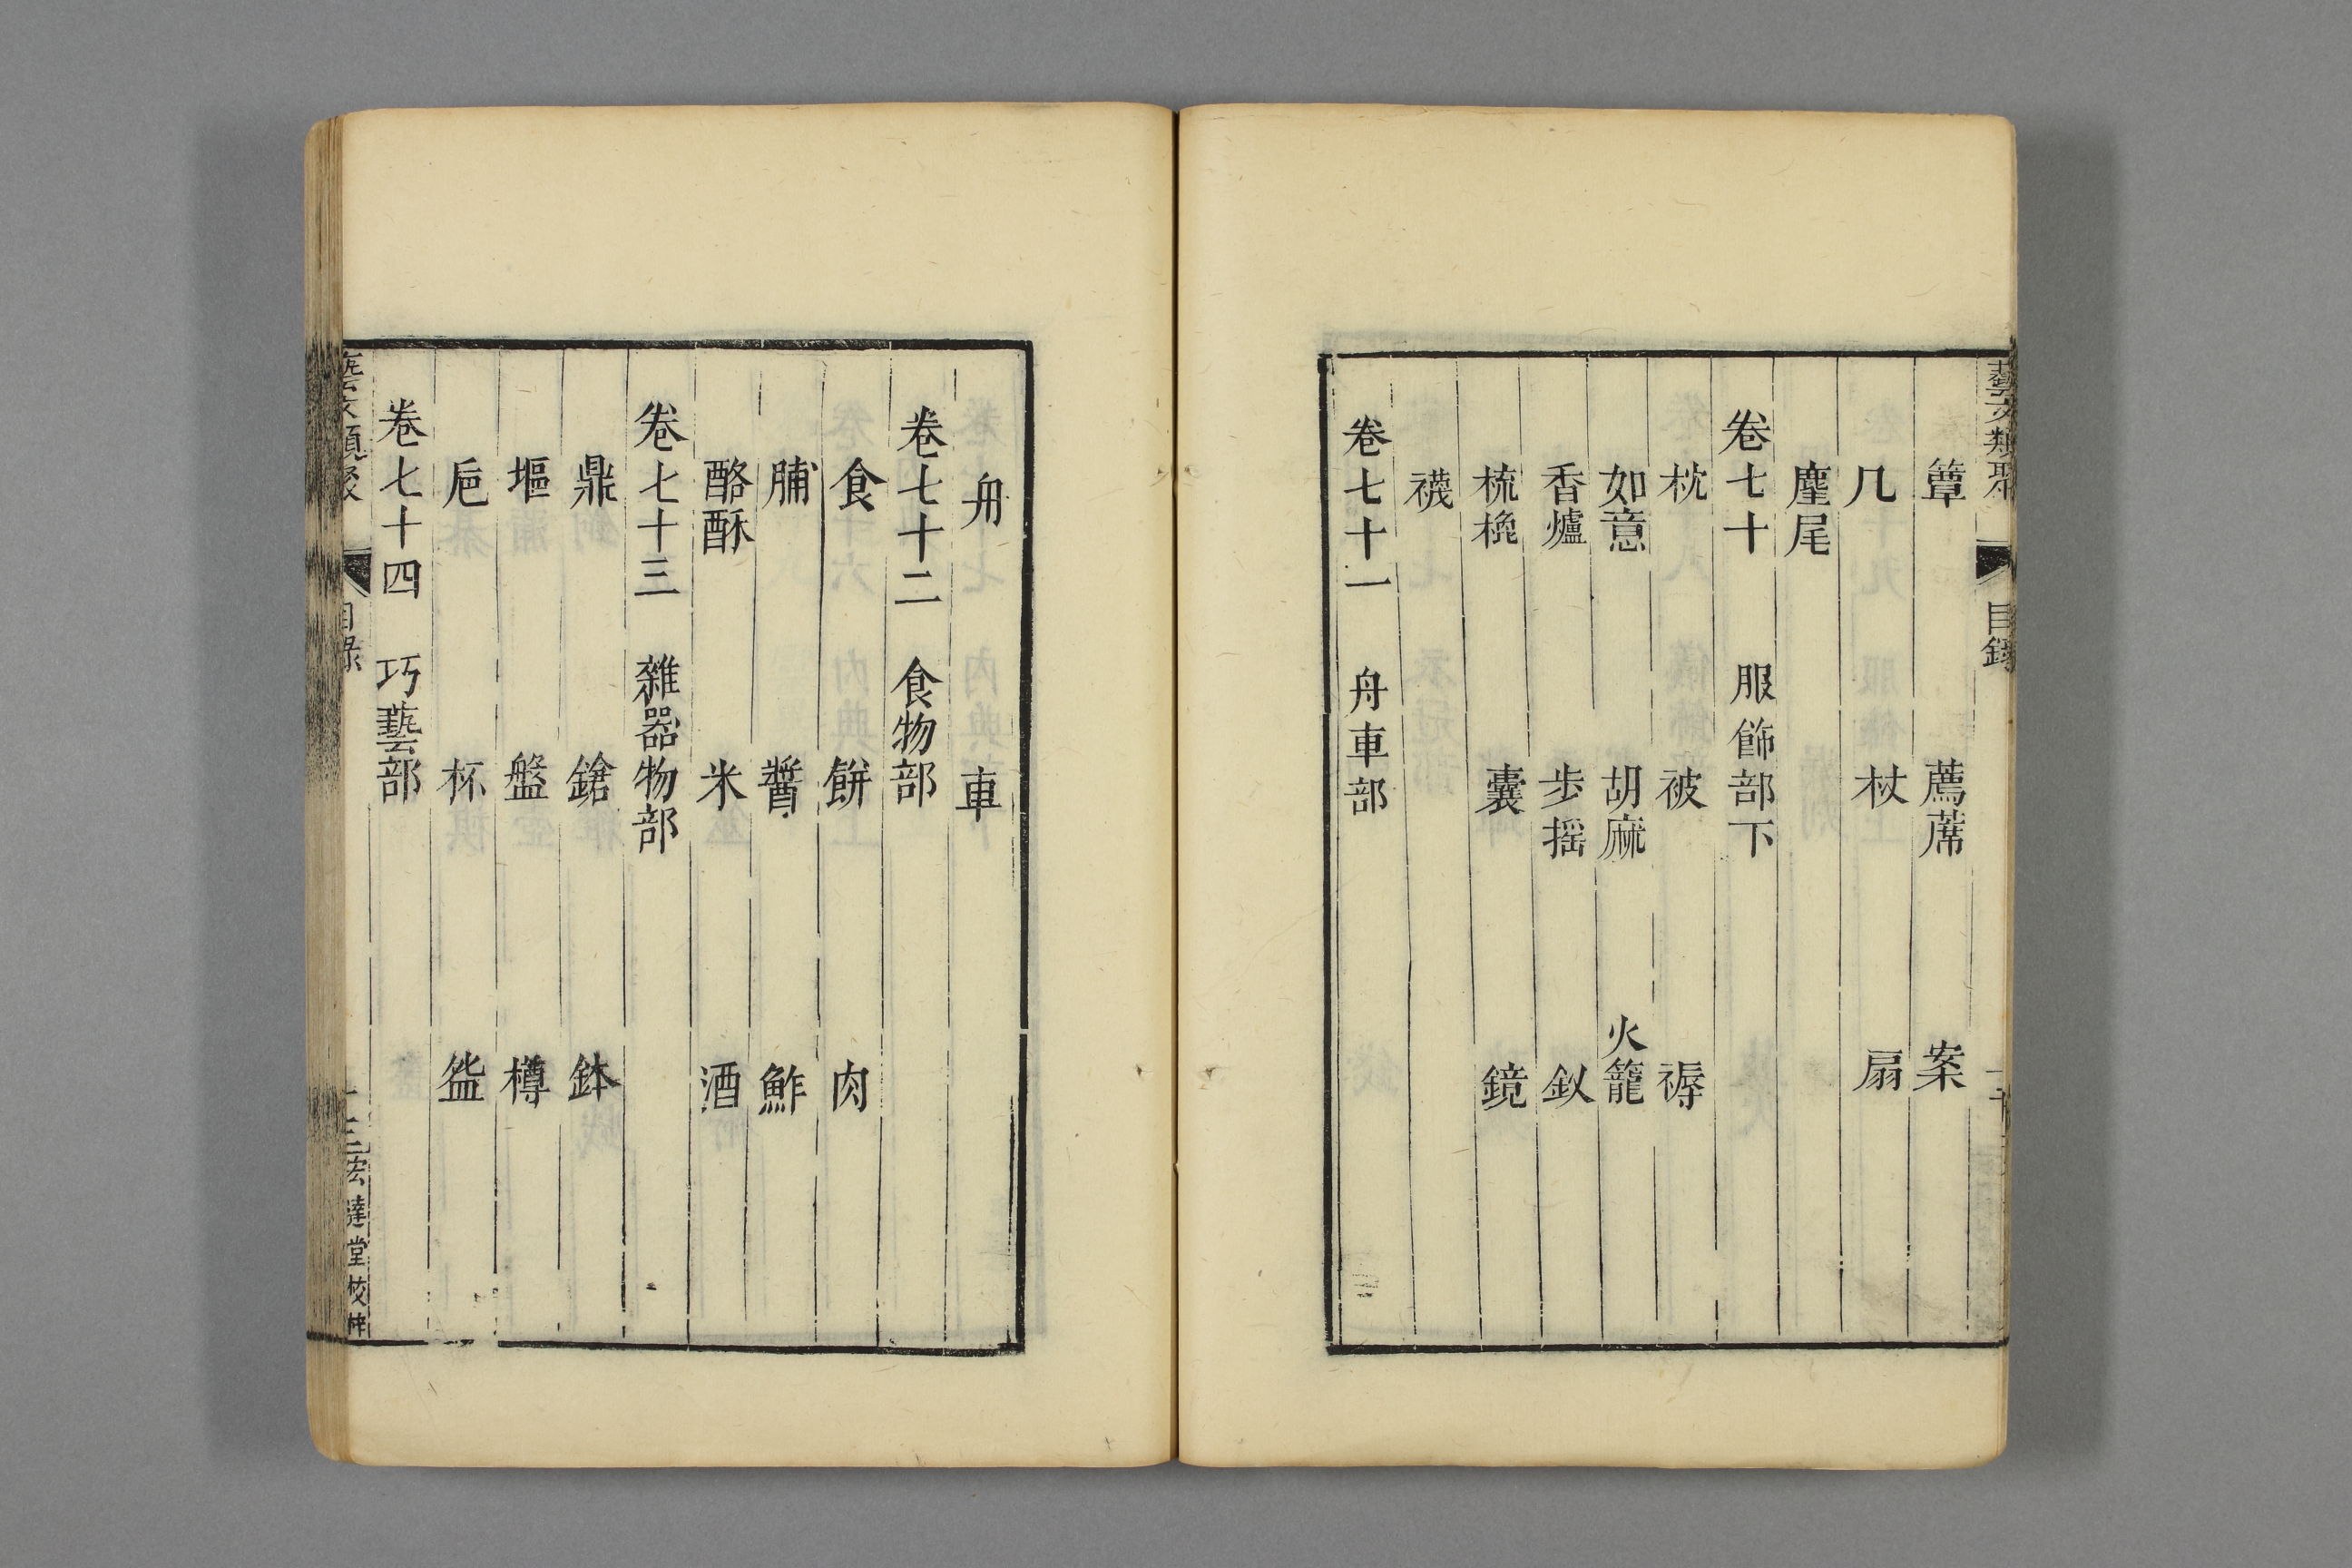 藝文類聚 目錄
簟 薦蓆 案
几 杖 扇
麈尾
卷七十 服飾部下
枕 被 褥
如意 胡麻 火籠
香爐 步摇 釵
梳櫳 囊 鏡
襪
卷七十一 舟車部
舟 車
卷七十二 食物部
食 餅 肉
脯 醬 鮓
酪酥 米 酒
卷七十三 雜器物部
鼎 鎗 鉢
塸 盤 樽
巵 杯 㿿
卷七十四 巧藝部
藝文類聚 目錄 堂校梓